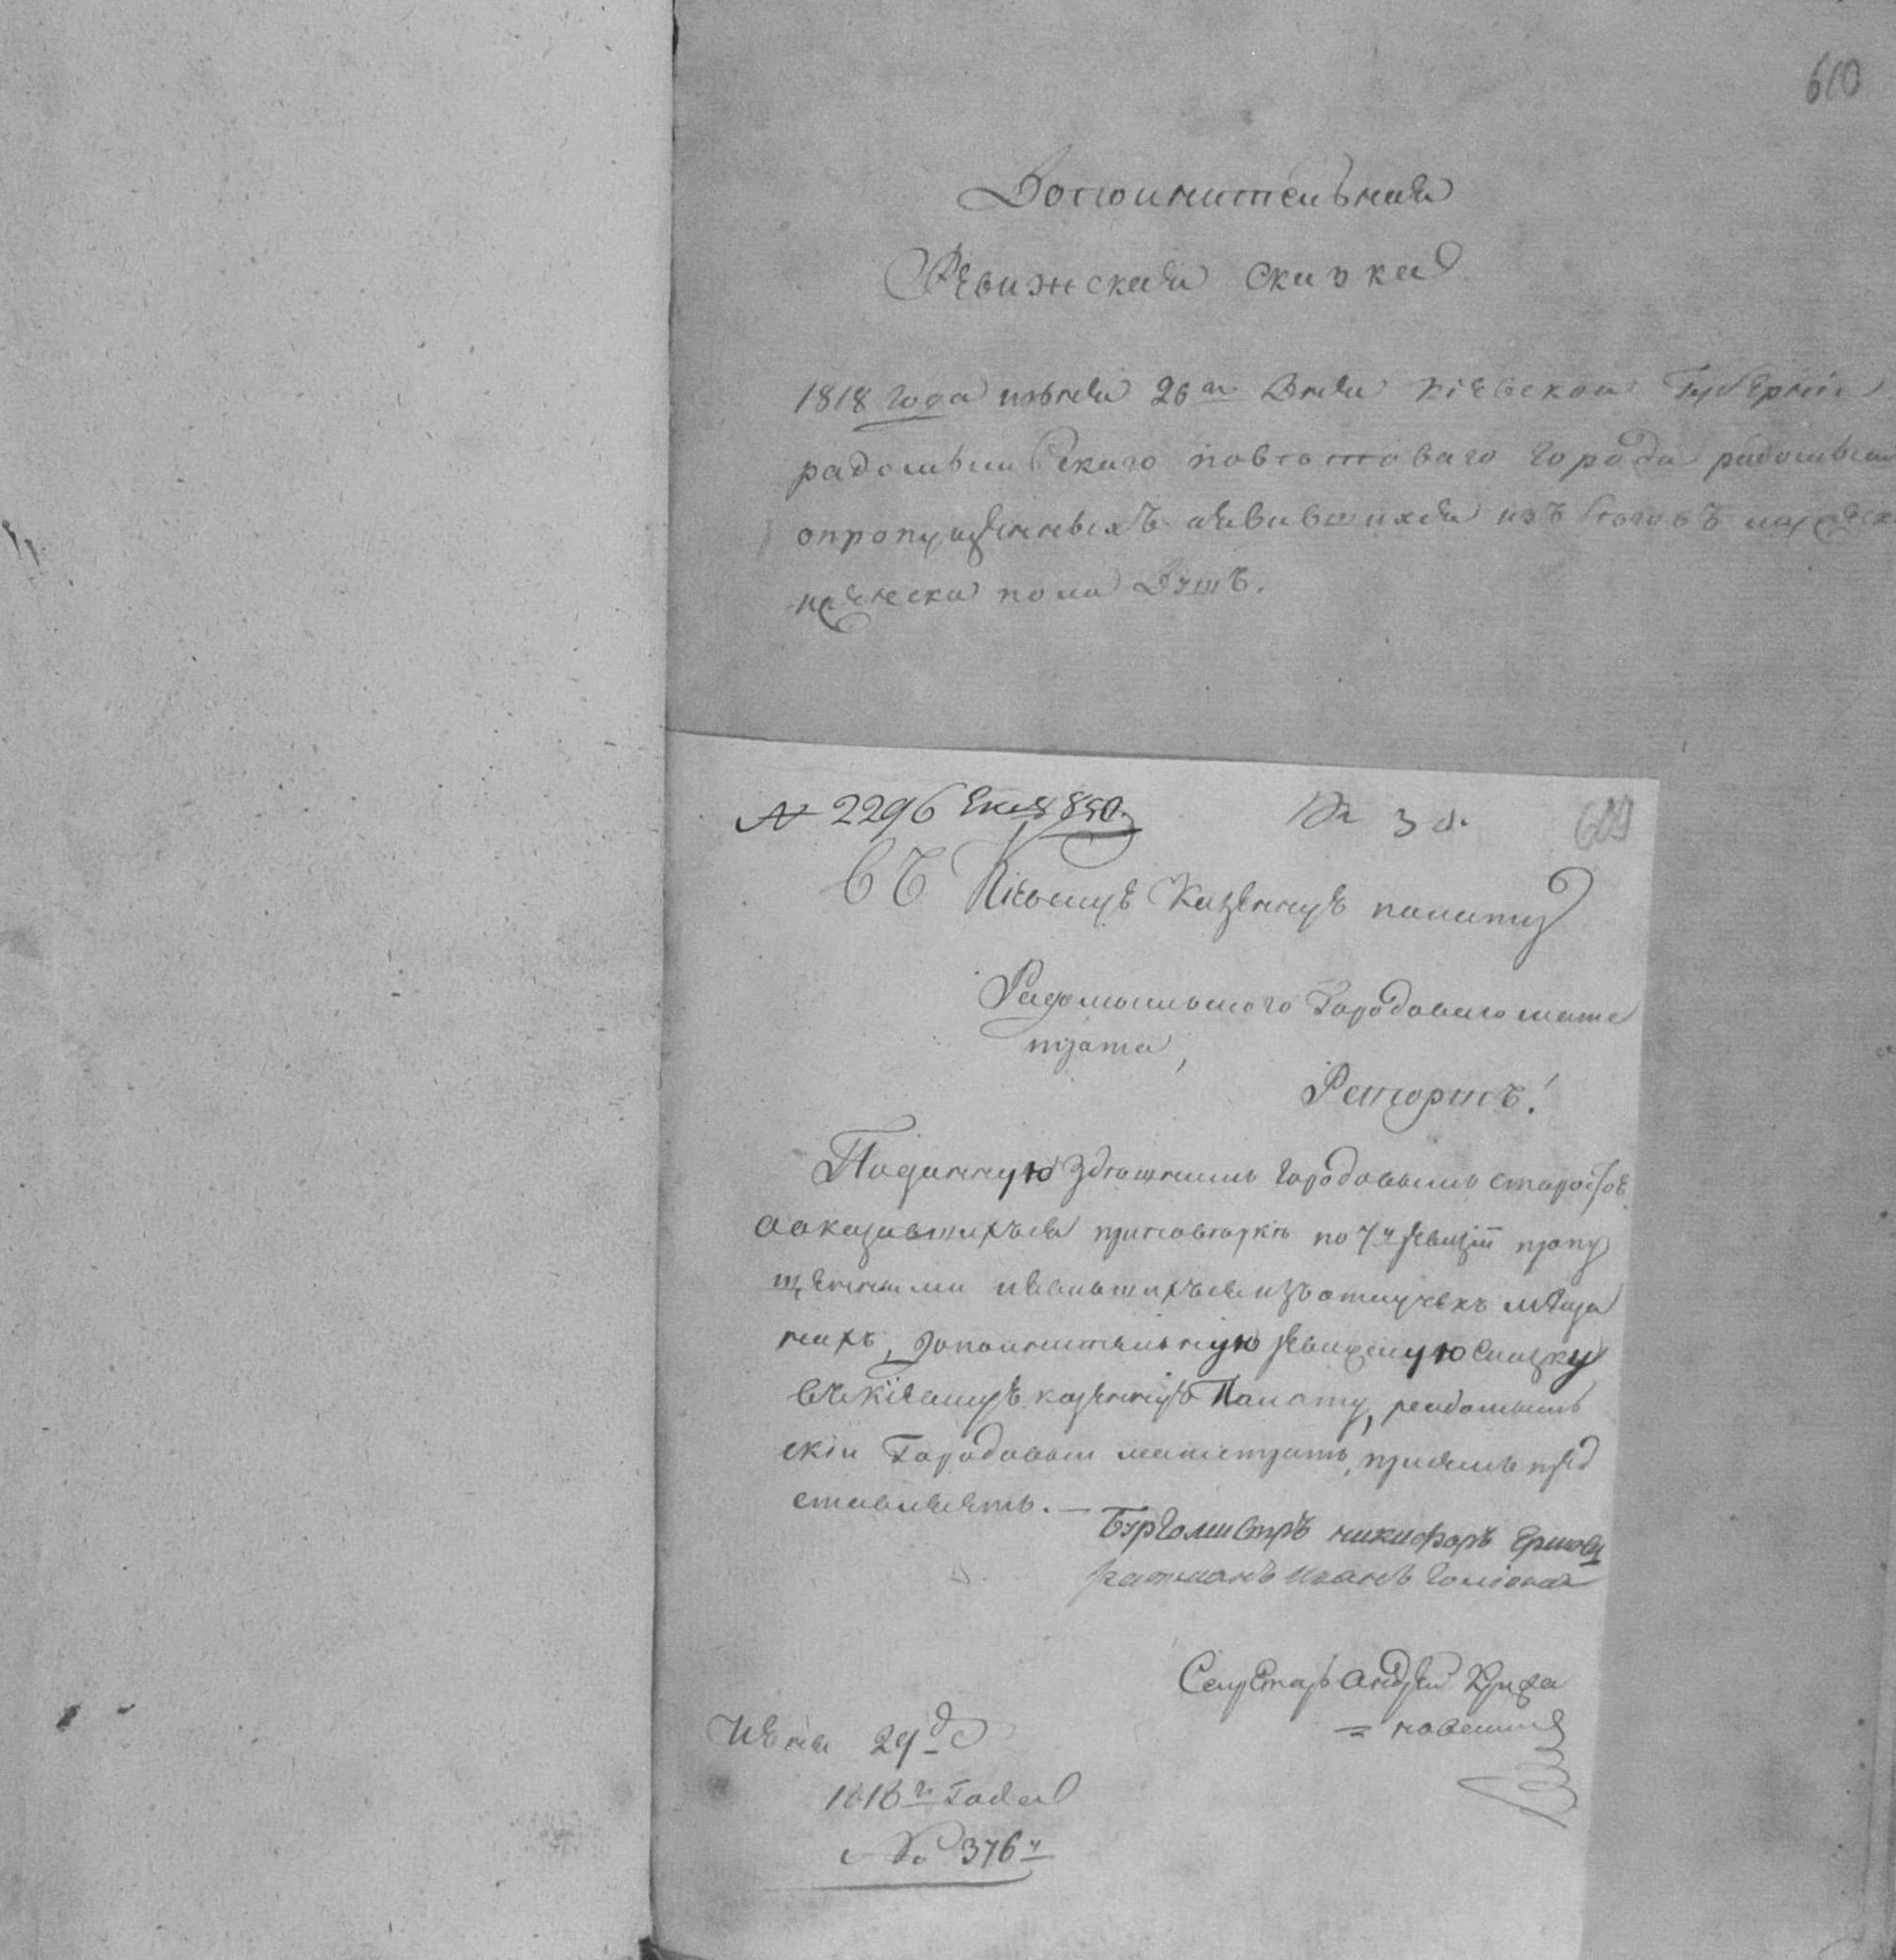 610
Дополнительная
Ревижская скаска
1818 года июня 26го дня киевской Губернии
радомысльского повѣтоваго города радомысля
о пропущенныхъ явившихся изъ бѣговъ мужеск
и женска пола душъ.
№ 2296 850
30.
609
Въ Кіевскую Казенную палату
Радомысльского Городоваго магис
трата,
Рапортъ!
Поданную здѣшнимъ городовымъ старостою
о оказавшихъся при повѣрки по 7й ревизіи пропу
щенными и явившихъся изъ отлучекъ мѣща
нахъ, дополнительную ревижскую сказку
въ кіевскую казенную Палату, радомысль
скій Городовый магистратъ при семъ пред
ставляетъ. —
Бургомистръ никифоръ
ратманъ Иванъ
Секретарь Андрей
= новский
Июня 29 д
1818го Года
№ 376й